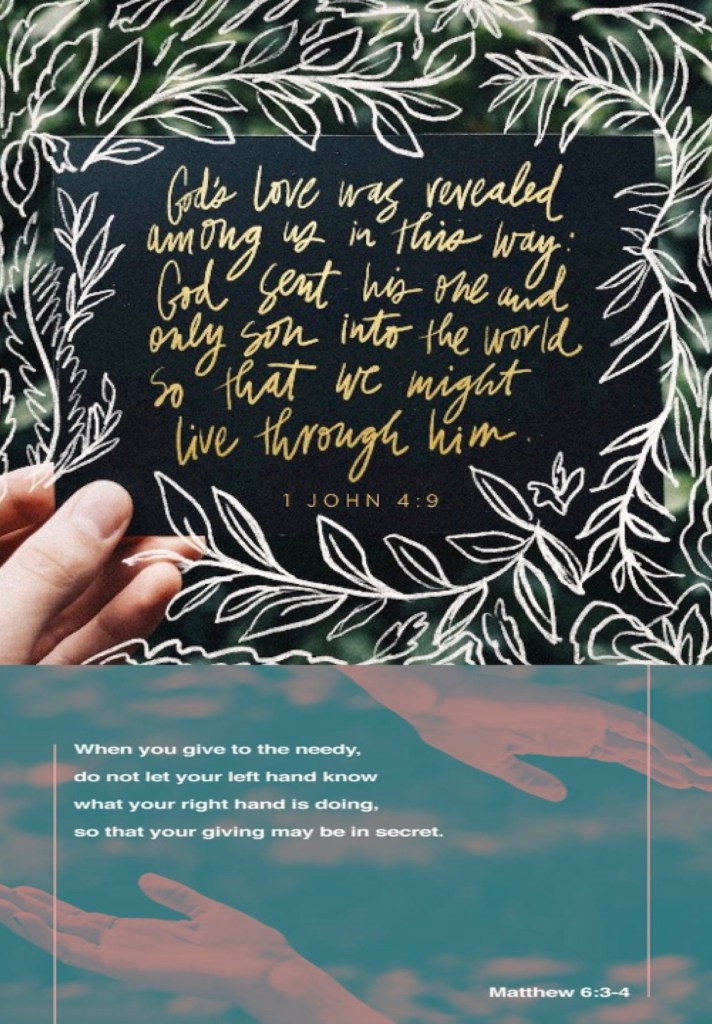 God's love was revealed
among us in this way:
God sent his one and
only son into the world
so that we might
live through him.
1 JOHN 4:9
When you give to the needy,
do not let your left hand know
what your right hand is doing,
so that your giving may be in secret.
Matthew 6:3-4